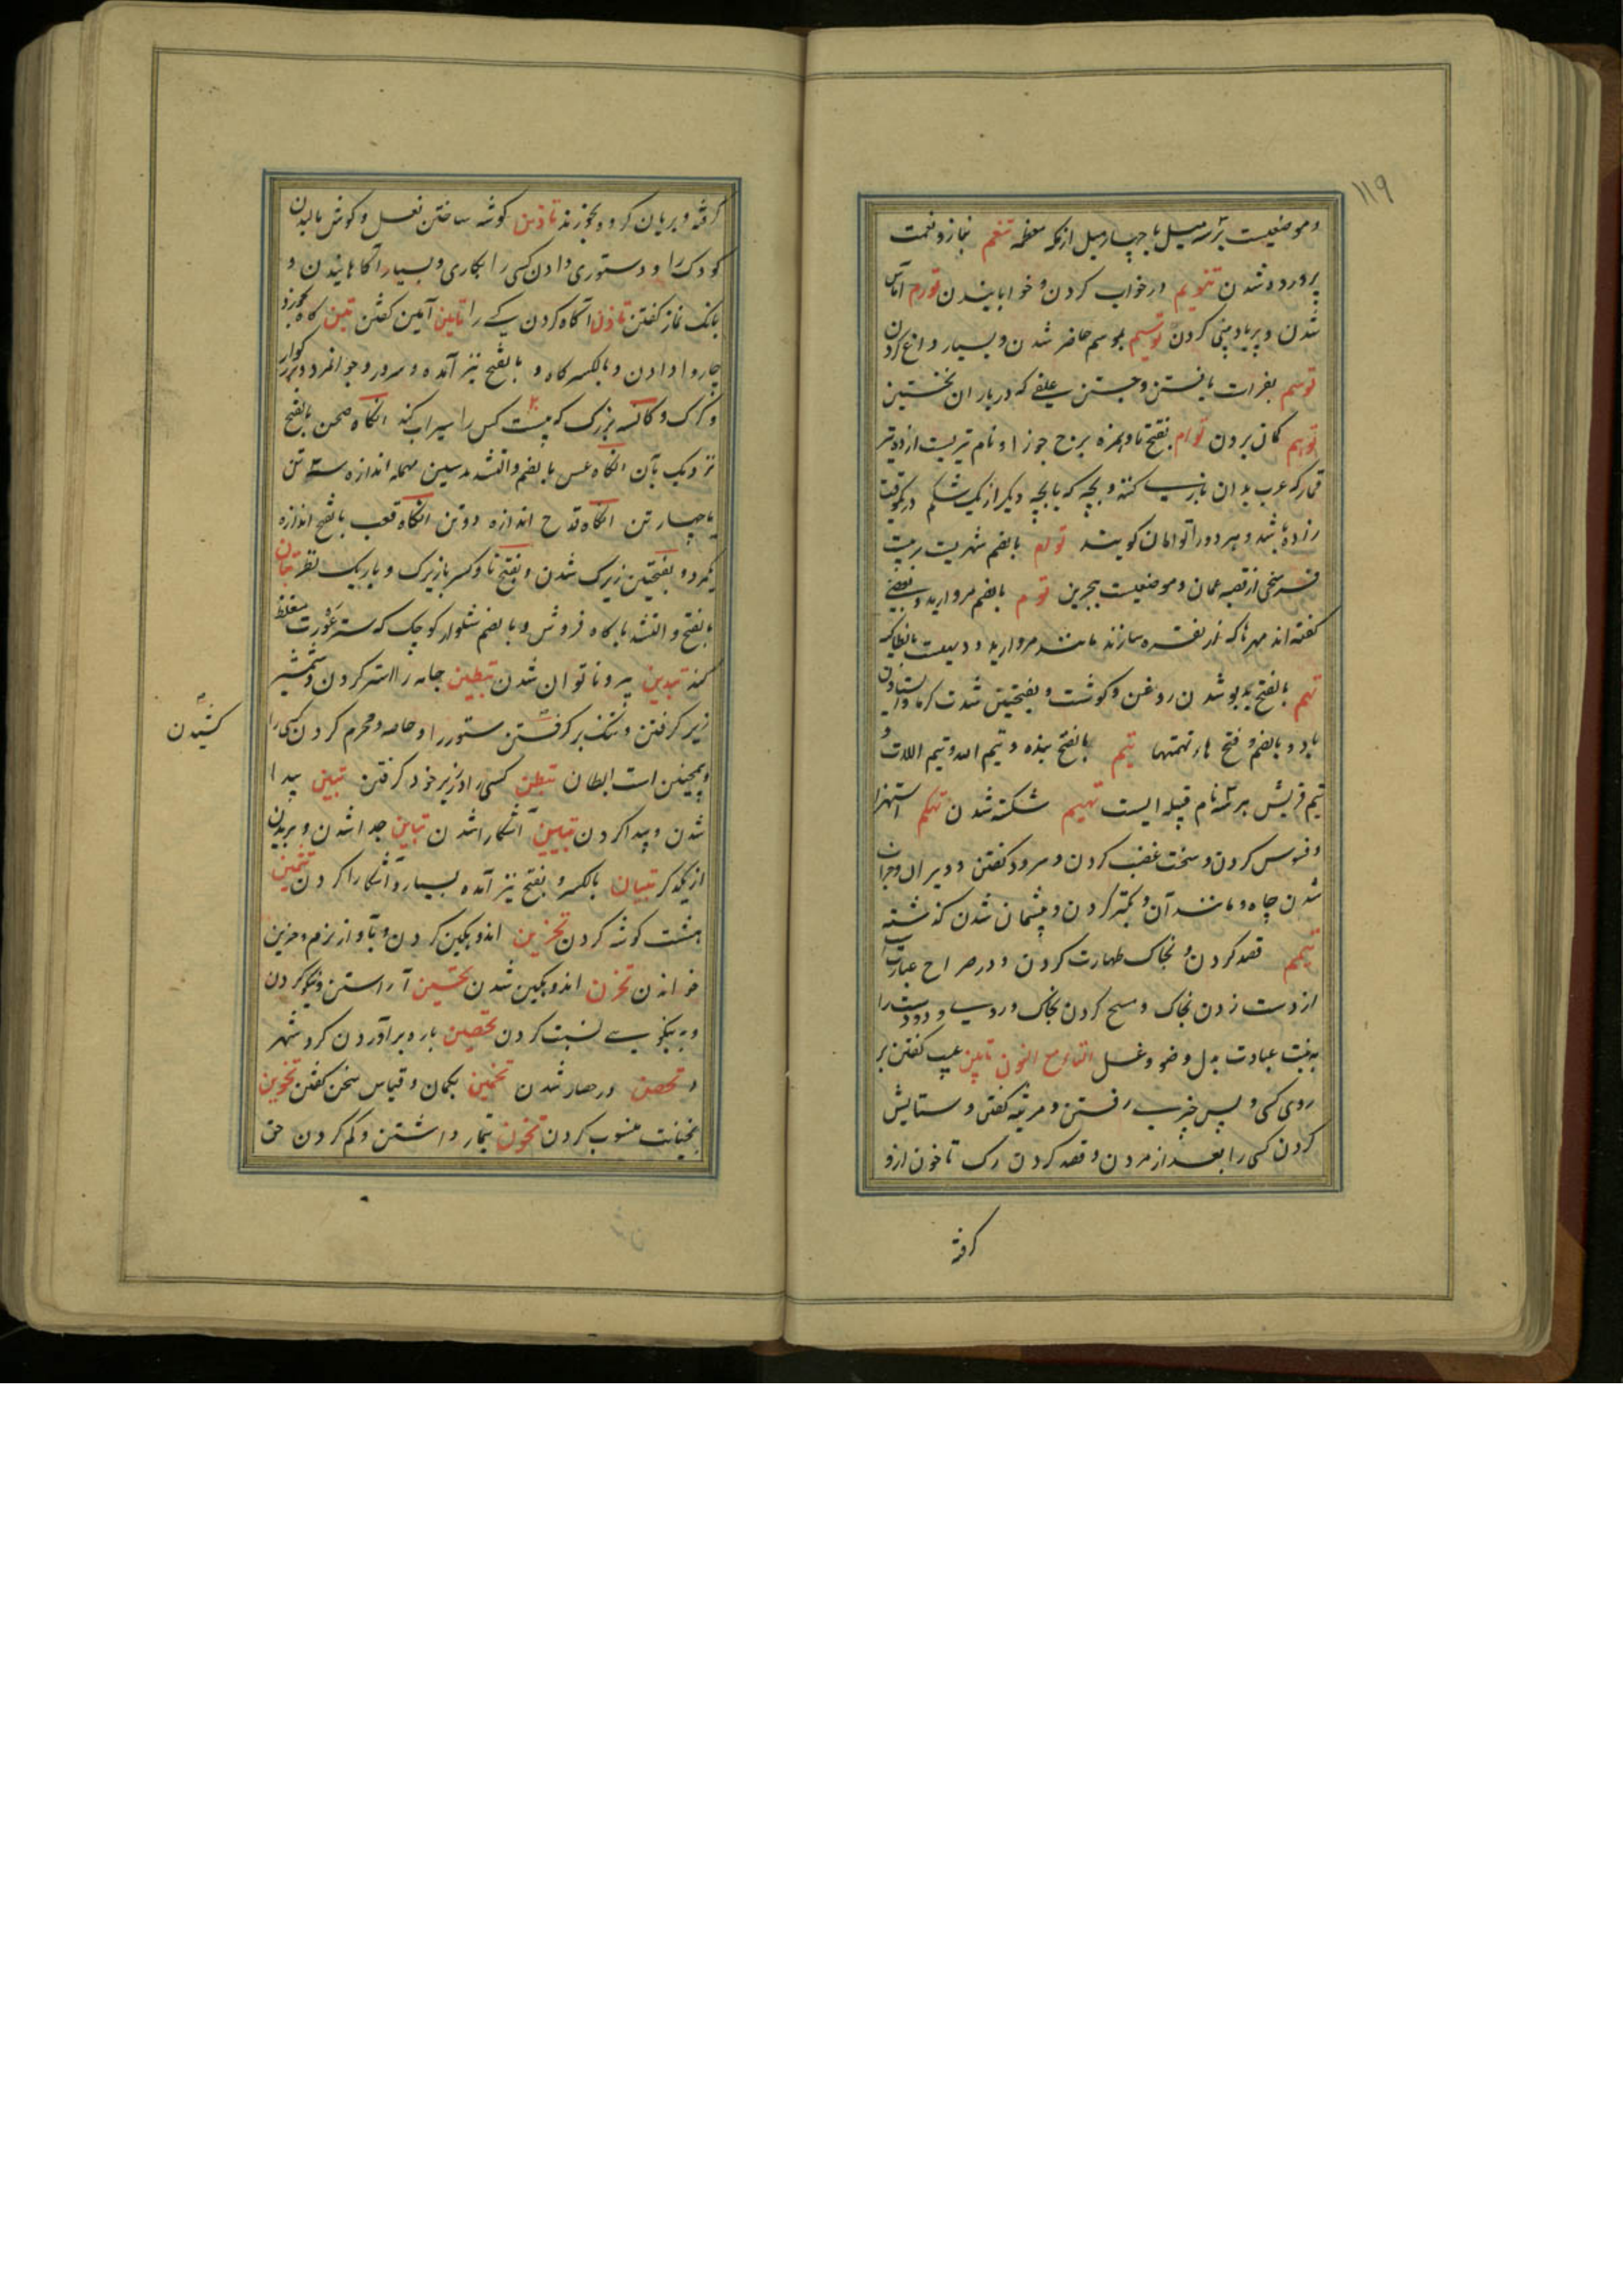 ۱۱۹
و موضعیست بر سه میل یا چهار میل از مکه معظمه تنعم بناز و نعمت
پرورده شدن تنویم در خواب کردن و خوابانیدن تورم آماس
شدن و پر باد بینی کردن توسیم بموسم حاضر شدن و بسیار داغ کردن
توسم بفراست یافتن و جستن علفی که در باران نخستین
توهم گمان بردن توأم بفتح تا و همزه برج جوزا و نام تیریست از ده تیر
قمار که عرب بدان بازی کنند و بچه که با بچه دیگر از یک شکم در یکوقت
زاده باشد و هر دو را توأمان گویند توام بالضم شهریست بر بیست
فرسخی از قصبه عمان و موضعیست ببحرین توم بالضم مروارید و بعضی
گفته‌اند مهرها که از نقره سازند مانند مروارید و دیهیست بانطاکیه
تهم بالفتح بدبو شدن روغن و گوشت و بفتحتین شدت گرما و ایستادن
باد و بالضم و فتح ها تهمتها تیم بالفتح بنده و تیم الله و تیم اللات و
تیم قریش هر سه نام قبیله ایست تهیم شکسته شدن تهکم استهزا
و فسوس کردن و سخت غضب کردن و سرود گفتن و ویران و خراب
شدن چاه و مانند آن و تکبر کردن و پشیمان شدن گذشته
تیمم قصد کردن و بخاک طهارت کردن و در صراح عبارت است
از دست زدن بخاک و مسح کردن بخاک و روی و دو دست را
به نیت عبادت بدل وضو و غسل التاء مع النون تأبین عیب گفتن بر
روی کسی و پس چیزی رفتن و مرثیه گفتن و ستایش
کردن کسی را بعد از مردن و قصد کردن رگ تا خون ازو
گرفته
گرفته و بریان کرده بخورند تأذین گوشه ساختن نعل و گوش مالیدن
کودک را و دستوری دادن کسی را بکاری و بسیار آگاهانیدن و
بانگ نماز گفتن تأذن آگاه کردن کسی را تأمین آمین گفتن تبن کاه بخورد
چاروا دادن و بالکسر کاه و بالفتح نیز آمده و سرور و جوانمرد و بزرگوار
و گرگ و کاسه بزرگ که بیست کس را سیراب کند آنگاه صحن بالفتح
نزدیک بآن آنگاه عس بالضم و التشدید سین مهمله اندازه سه تن
یا چهار تن آنگاه قدح اندازه دو تن آنگاه قعب بالفتح اندازه
یکمرد و بفتحتین زیرک شدن و بفتح تا و کسر با زیرک و باریک نظر تبان
بالفتح و التشدید کاه فروش و بالضم شلوار کوچک که ستر عورت مغلظ
کند تبدین پیر و ناتوان شدن تبطین جامه را استر کردن و شمشیر
زیر گرفتن و تنگ بر گرفتن ستور را و خاصه و محرم کردن کسی را
و همچنین است ابطان تبطن کسی را در زیر خود گرفتن تبین پیدا
شدن و پیدا کردن تبیین آشکارا شدن تباین جدا شدن و بریدن
از یکدیگر تبیان بالکسر و بفتح نیز آمده بسیار آشکارا کردن تثمین
هشت گوشه کردن تحزین اندوهگین کردن و بآواز نرم و حزین
خواندن تحزن اندوهگین شدن تحسین آراستن و نیکو کردن
و به نیکویی نسبت کردن تحصین باره برآوردن گرد شهر
و تحصن در حصار شدن تخمین بگمان و قیاس سخن گفتن تخوین
بخیانت منسوب کردن تخون تیمار داشتن و کم کردن حق
کشیدن